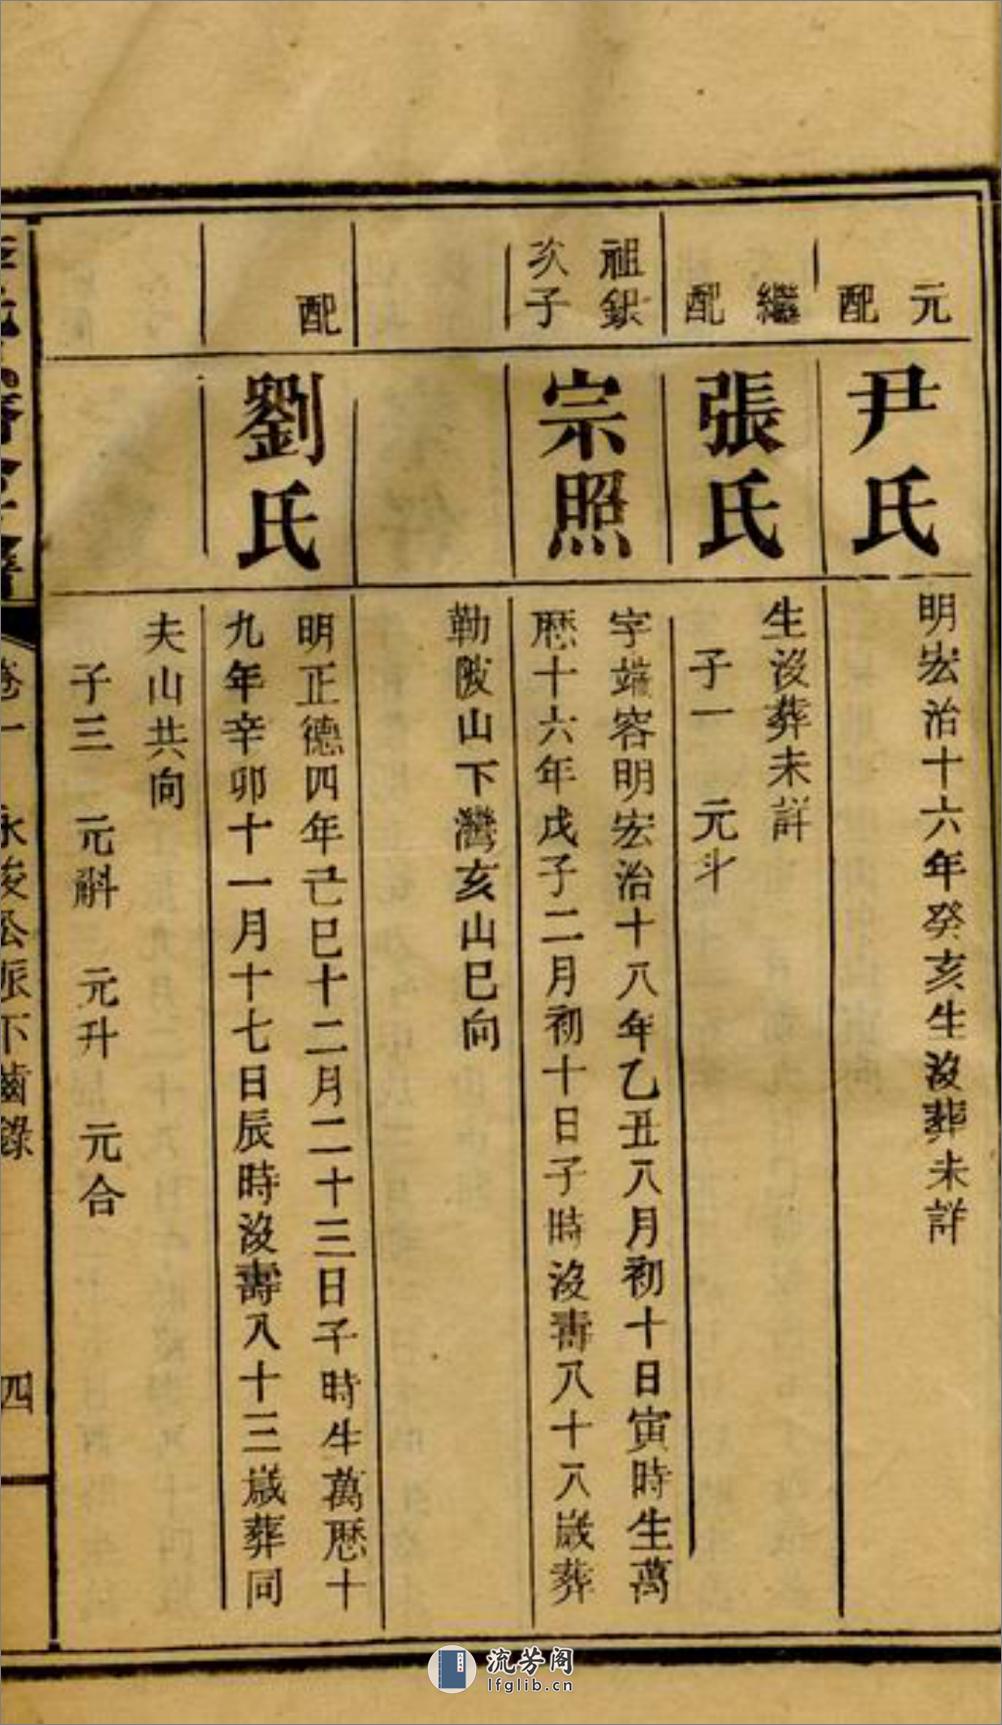 元配
尹氏
明宏治十六年癸亥生沒葬未詳
繼配
張氏
生沒葬未詳
子一　元斗
祖銀次子
宗照
字端容明宏治十八年乙丑八月初十日寅時生萬
歷十六年戊子二月初十日子時沒壽八十八歲葬
勒陂山下灣亥山巳向
配
劉氏
明正德四年己巳十二月二十三日子時生萬歷十
九年辛卯十一月十七日辰時沒壽八十三歲葬同
夫山共向
子三　元斛　元升　元合
卷一　永俊公派下齒錄　四
流芳阁
lfglib.cn